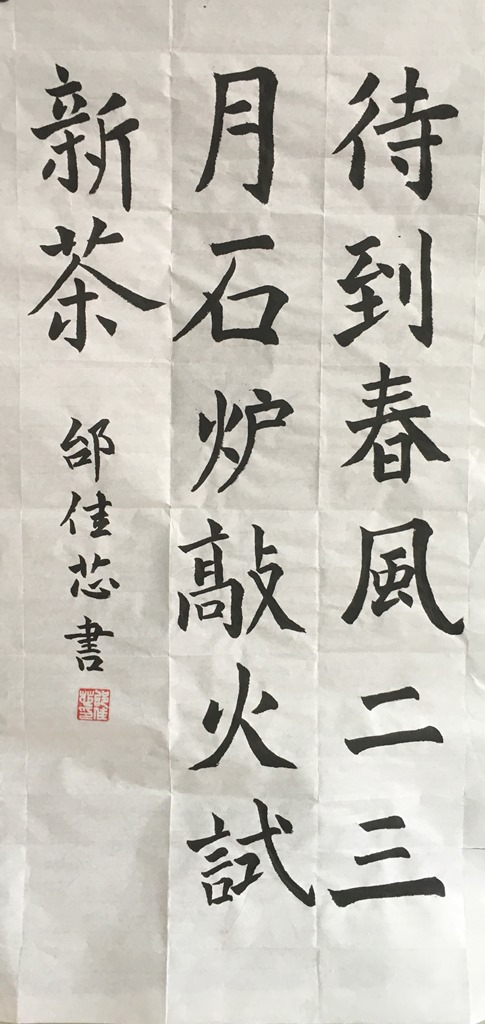 待到春風二三
月石炉敲火試
新茶
邰佳芯書